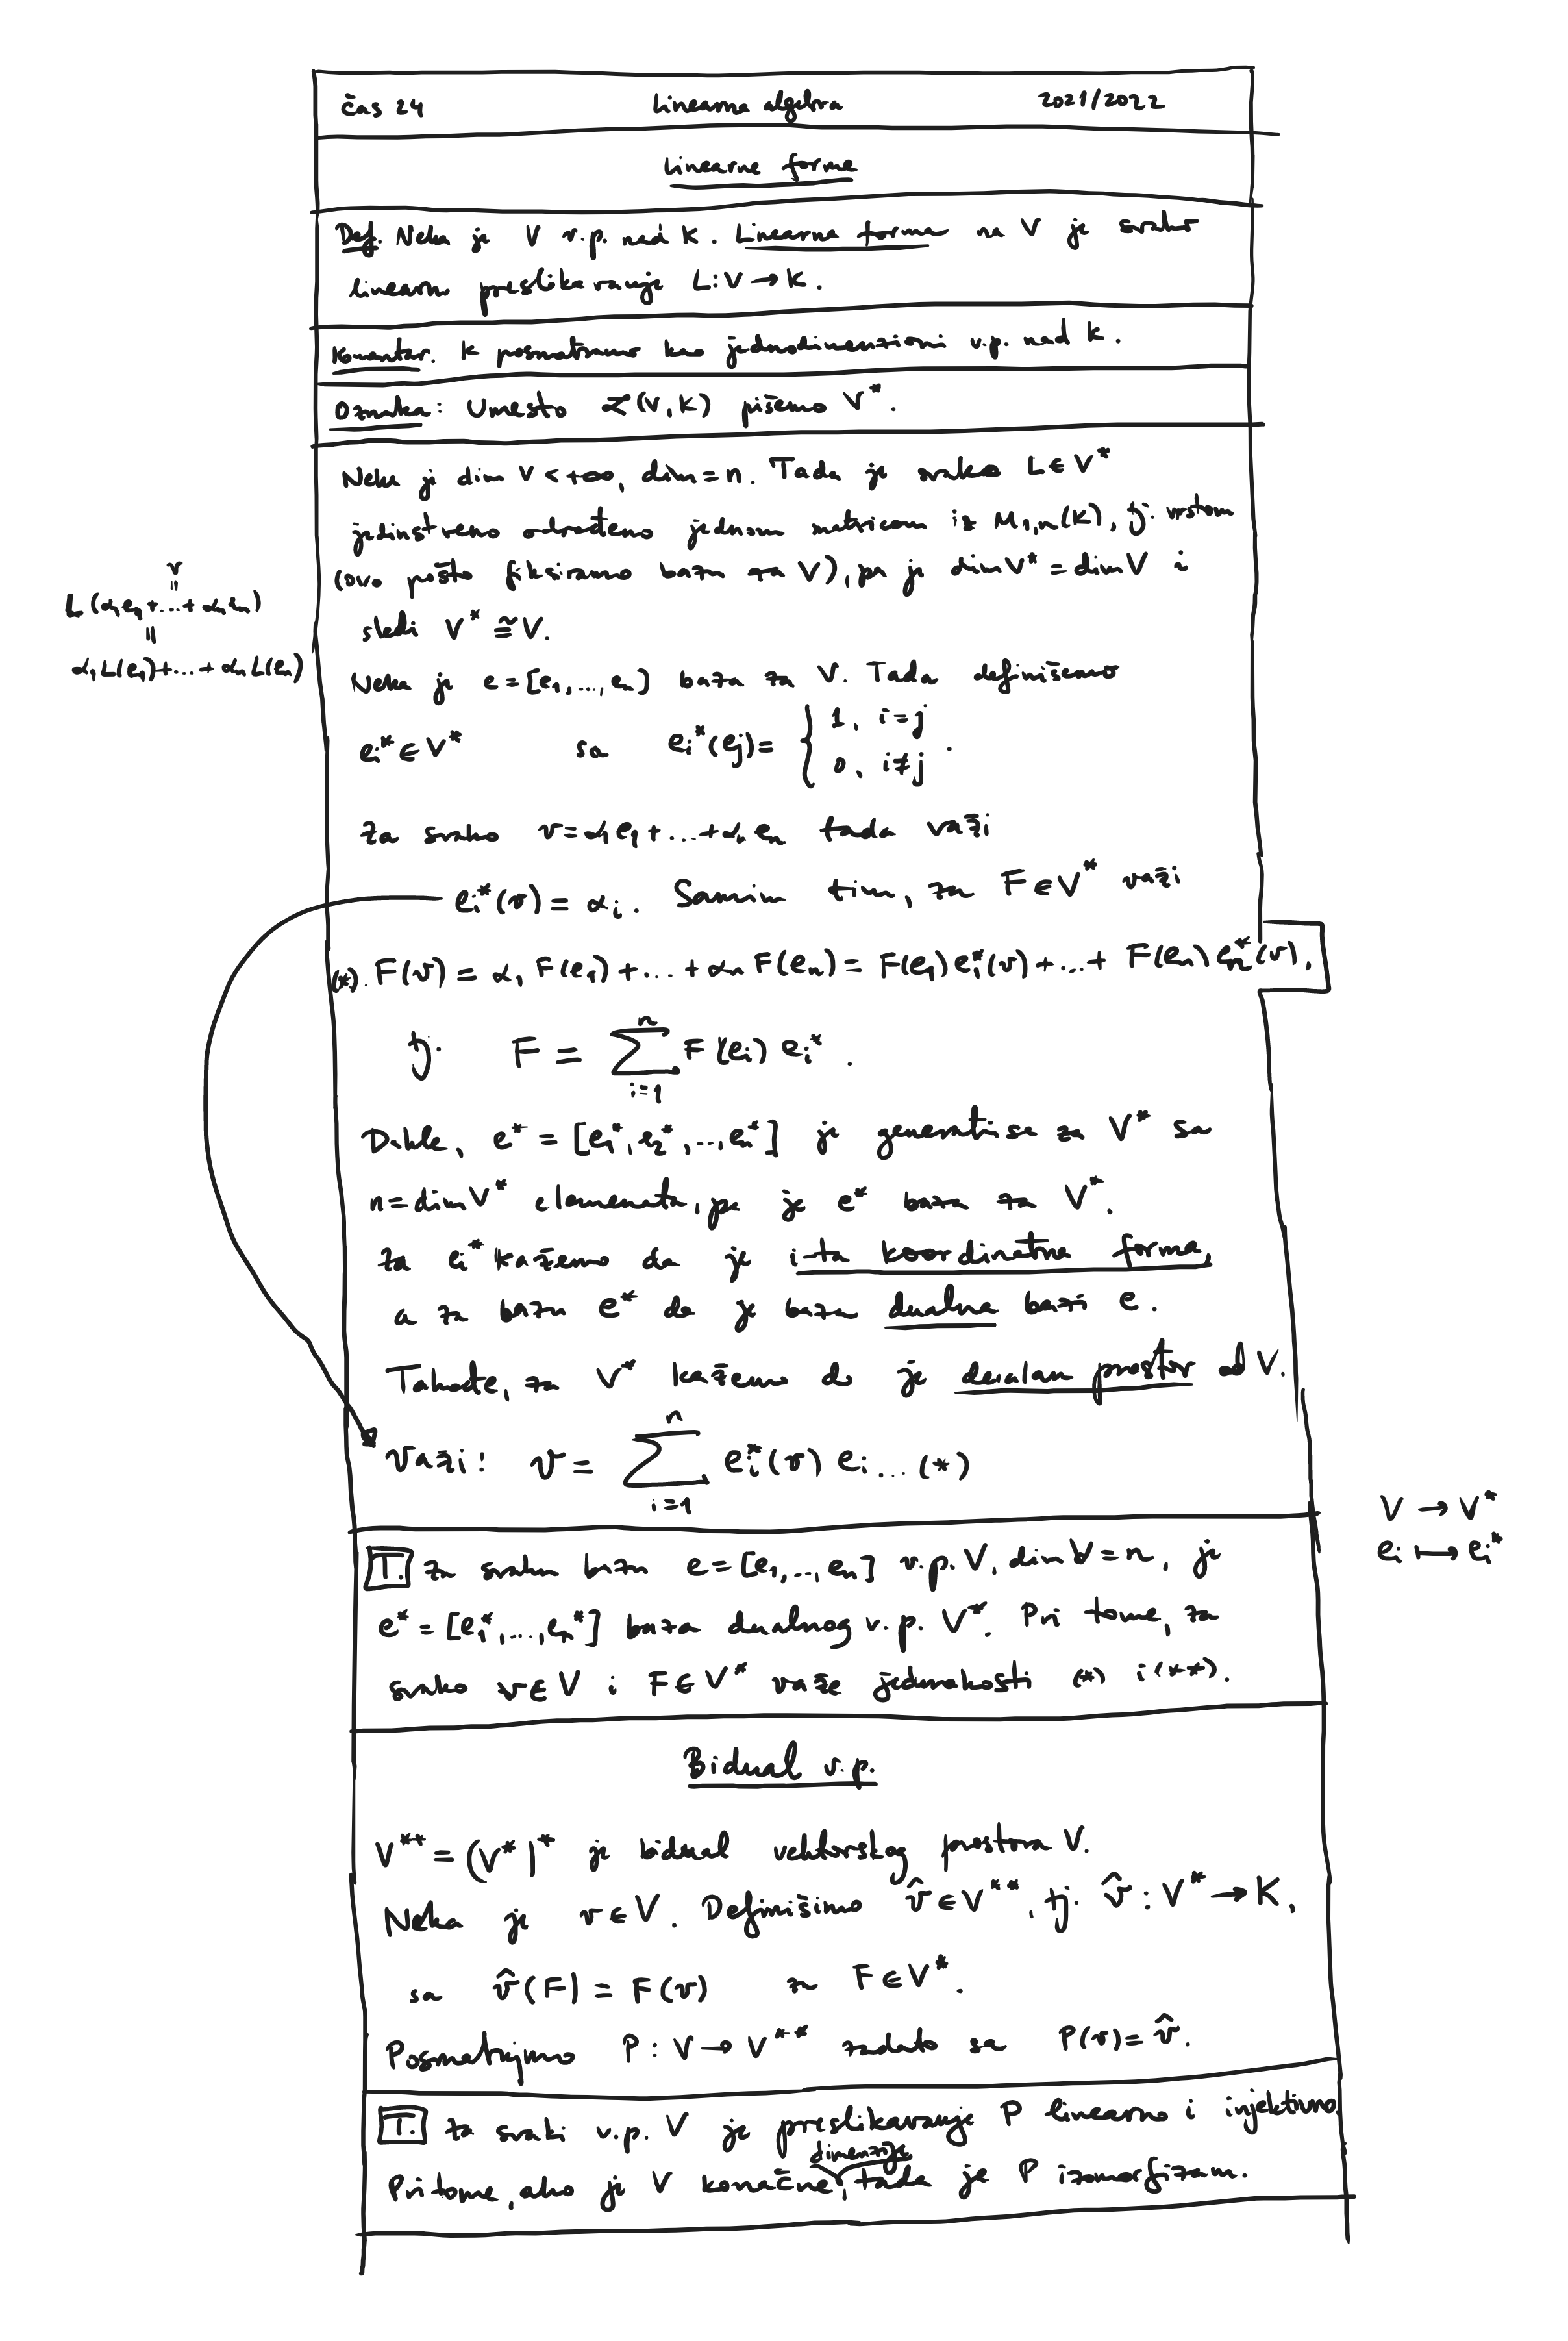 čas 24 Linearna algebra 2021/2022
Linearne forme
Def. Neka je V v.p. nad K. Linearna forma na V je svako
linearno preslikavanje L: V → K.
Komentar. K posmatramo kao jednodimenzioni v.p. nad K.
Oznaka: Umesto ℒ(V, K) pišemo V*.
Neka je dim V < +∞, dim = n. Tada je svako L ∈ V*
jedinstveno određeno jednom matricom iz M₁,ₙ(K), tj. vrstom
(ovo pošto fiksiramo bazu za V), pa je dim V* = dim V i
sledi V* ≅ V.
v
=
L(α₁e₁+...+αₙeₙ)
=
α₁L(e₁)+...+αₙL(eₙ)
Neka je e = [e₁, ..., eₙ] baza za V. Tada definišemo
eᵢ* ∈ V* sa eᵢ*(eⱼ) = { 1, i=j
0, i≠j .
Za svako v = α₁e₁+...+αₙeₙ tada važi
eᵢ*(v) = αᵢ. Samim tim, za F ∈ V* važi
(*). F(v) = α₁F(e₁)+...+αₙF(eₙ) = F(e₁)e₁*(v)+...+F(eₙ)eₙ*(v),
tj. F = ∑ᵢ₌₁ⁿ F(eᵢ) eᵢ* .
Dakle, e* = [e₁*, e₂*, ..., eₙ*] je generatrisa za V* sa
n = dim V* elemenata, pa je e* baza za V*.
Za eᵢ* kažemo da je i-ta koordinatna forma,
a za bazu e* da je baza dualna bazi e.
Takođe, za V* kažemo da je dualan prostor od V.
Važi: v = ∑ᵢ₌₁ⁿ eᵢ*(v) eᵢ ... (*)
V → V*
eᵢ ↦ eᵢ*
T. Za svaku bazu e = [e₁, ..., eₙ] v.p. V, dim V = n, je
e* = [e₁*, ..., eₙ*] baza dualnog v.p. V*. Pri tome, za
svako v ∈ V i F ∈ V* važe jednakosti (*) i (**).
Bidual v.p.
V** = (V*)* je bidual vektorskog prostora V.
Neka je v ∈ V. Definišimo v̂ ∈ V**, tj. v̂: V* → K,
sa v̂(F) = F(v) za F ∈ V*.
Posmatrajmo P: V → V** zadato sa P(v) = v̂.
T. Za svaki v.p. V je preslikavanje P linearno i injektivno.
dimenzije
Pri tome, ako je V konačne, tada je P izomorfizam.